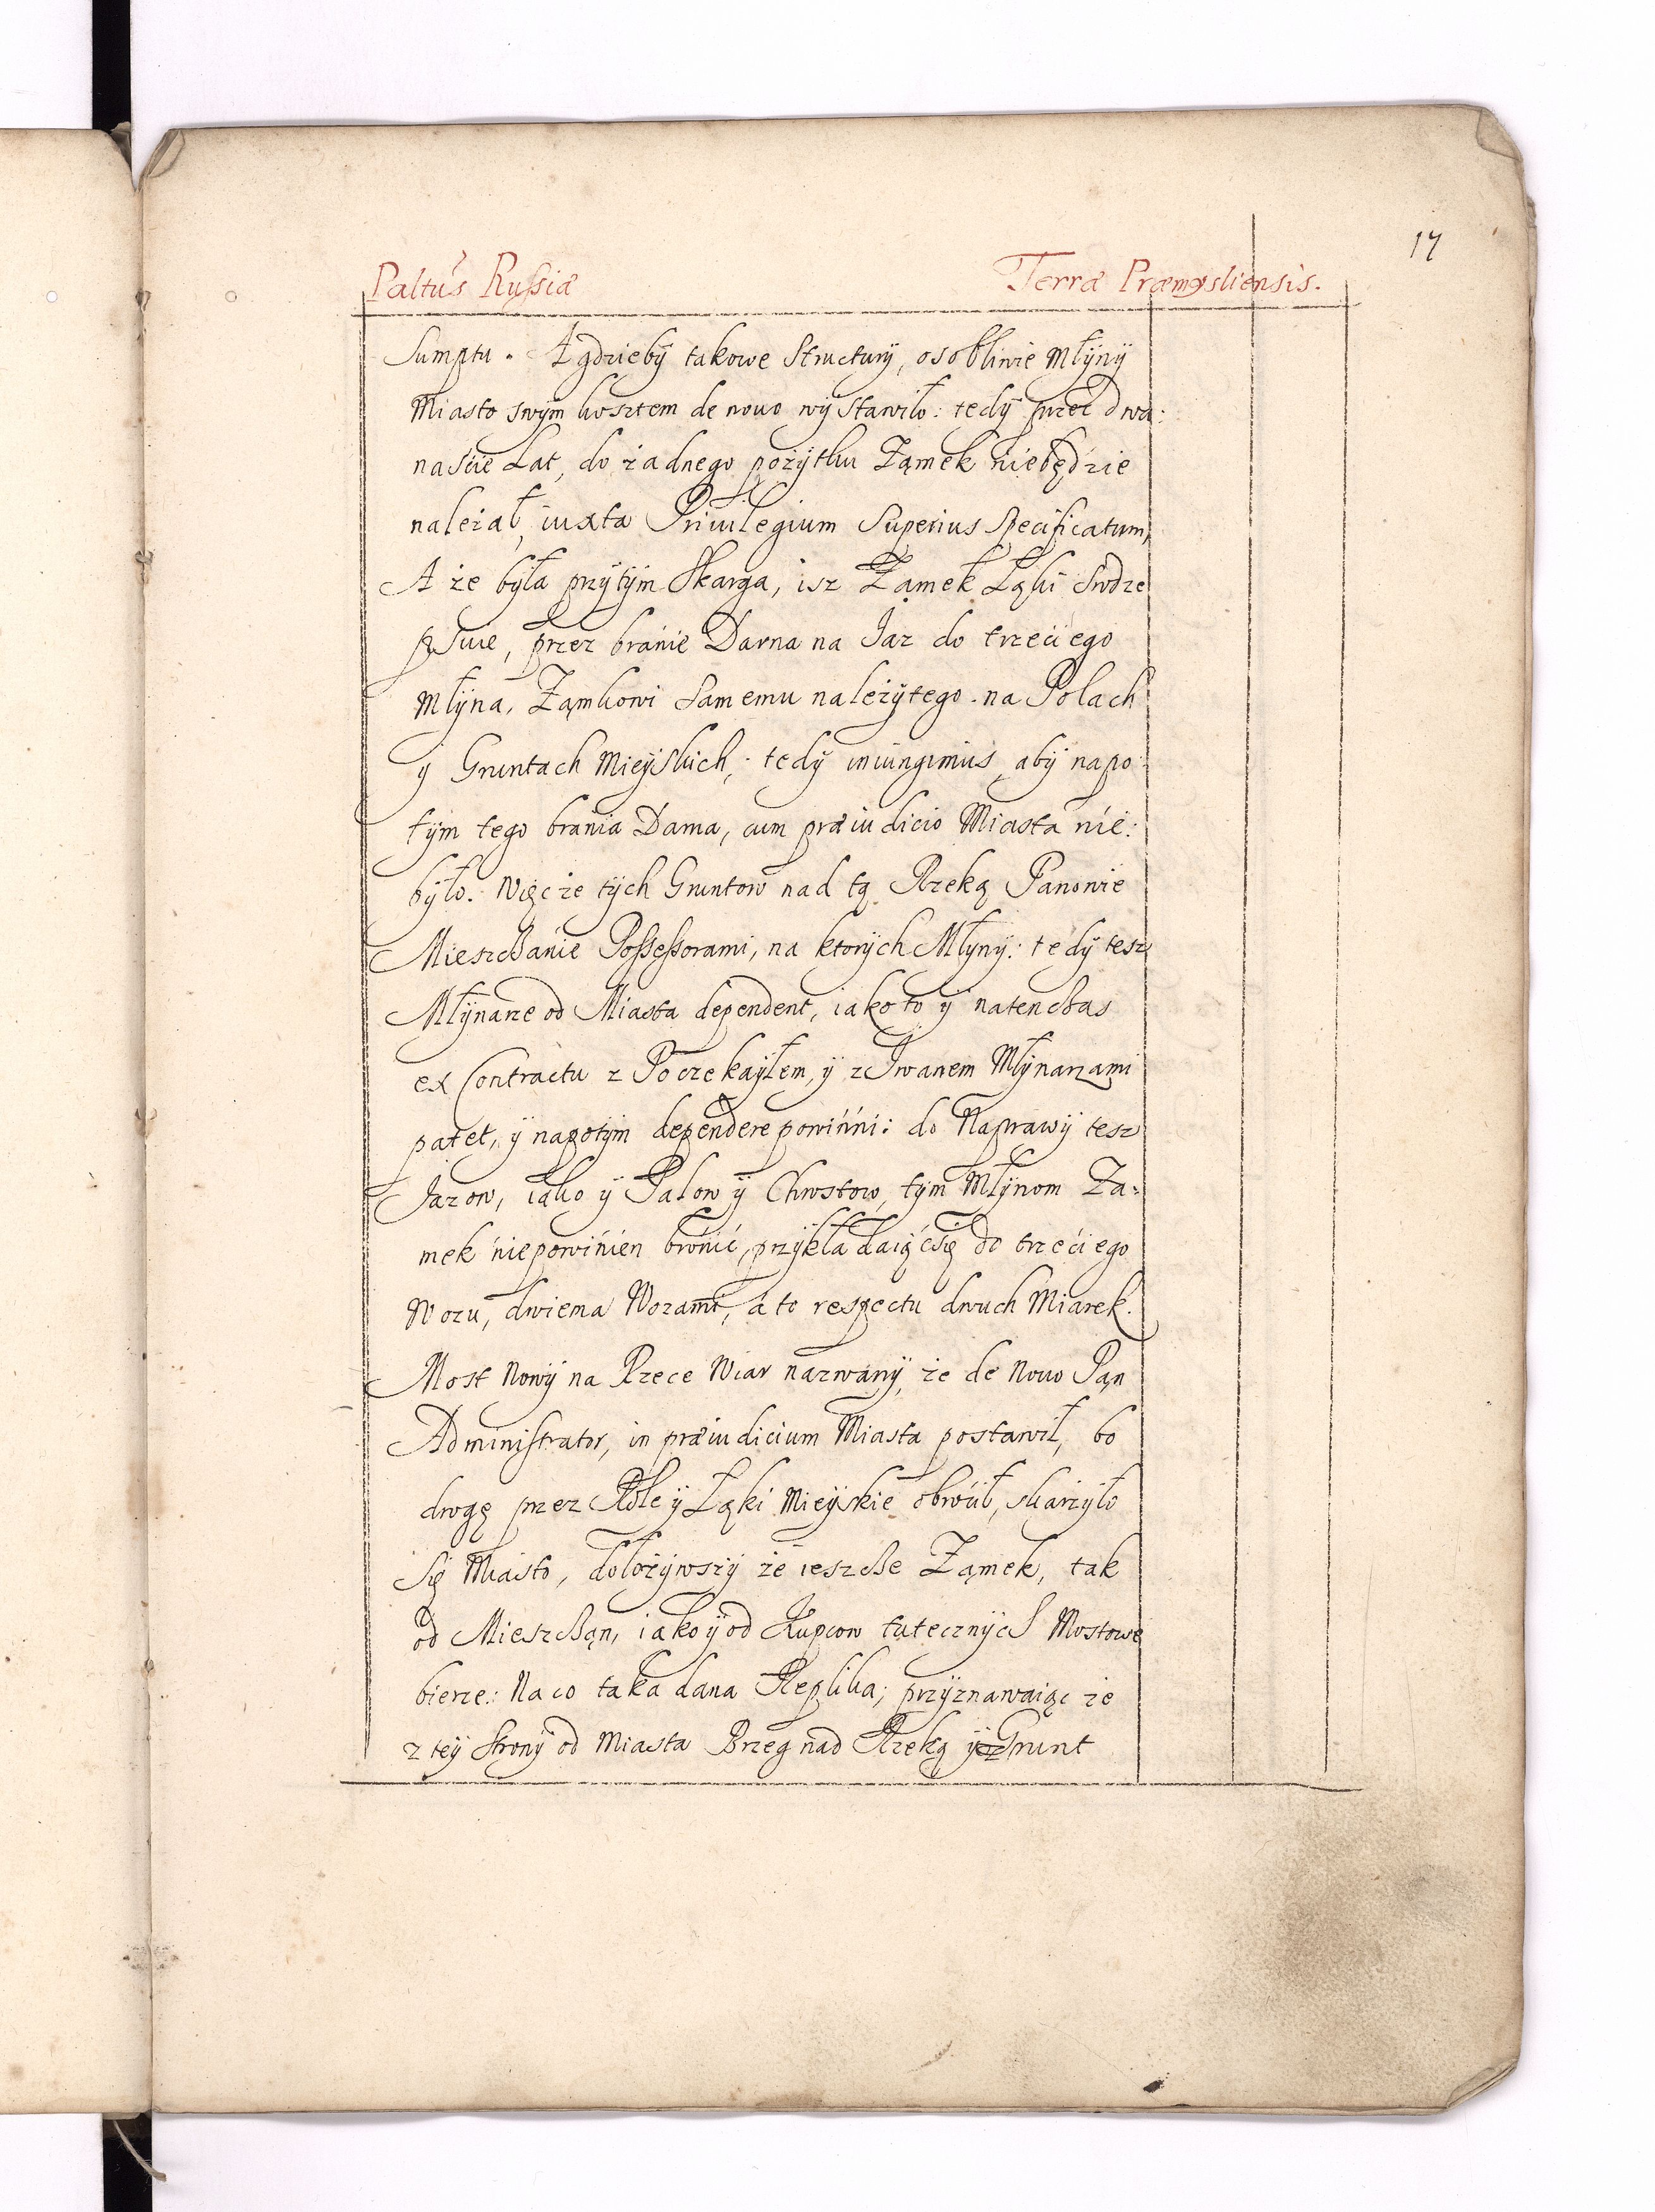 17
Paltus Russiæ Terræ Præmysliensis.
Sumptu. A gdzieby takowe Structury, osobliwie Młyny
Miasto swym kosztem de nouo wystawiło: tedy przez dwa:
naście Lat, do żadnego pożytku Zamek niebędzie
należał, iuxta Priuilegium Superius Specificatum,
A że była przytym Skarga, isz Zamek Łąki Srodze
psuie, przez branie Darna na Jaz do trzeciego
Młyna, Zamkowi Samemu należytego. na Polach
y Gruntach Mieyskich,: tedy iniungimus, aby napo:
tym tego brania Darna, cum præiudicio Miasta nie:
było. Więc że tych Gruntow nad tą Rzeką Panowie
Mieszczanie Possessorami, na ktorych Młyny: tedy tesz
Młynarze od Miasta dependent, iako to y natenczas
ex Contractu z Poczekayłem, y z Iwanem Młynarzami
patet, y napotym dependere powinni: do Naprawy tesz
Jazow, iako y Palow y Chwstow, tym Młynom Za:
mek niepowinien bronić, przykładaiąc się do trzeciego
Wozu, dwiema Wozami, a to respectu dwuch Miarek.
Most Nowy na Rzece Wiar nazwany, że de Nouo Pan
Administrator, in præiudicium Miasta postawił, bo
drogę przez Role y Łąki Mieyskie obrocił, skarzyło
Się Miasto, dołożywszy że ieszcze Zamek, tak
od Mieszczan, iako y od Kupcow tutecznych Mostowe
bierze.: Na co taka dana Replika; przyznawaiąc że
z tey Strony od Miasta Brzeg nad Rzeką y Grunt